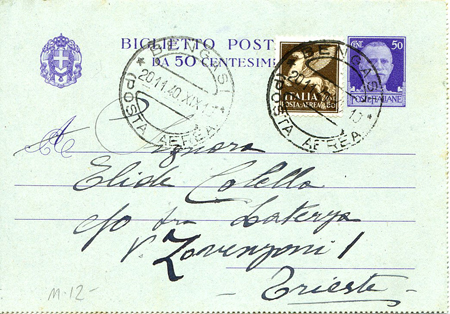 BIGLIETTO POST
DA 50 CENTESIMI
BENGASI
20.11.40.XIX
(POSTA AEREA)
ITALIA
POSTA AEREA
BENGASI
(POSTA AEREA)
CENT. 50
POSTE ITALIANE
Signora
Elide Colella
c/o Laterza
V. Zovenzoni 1
- Trieste -
M-12-